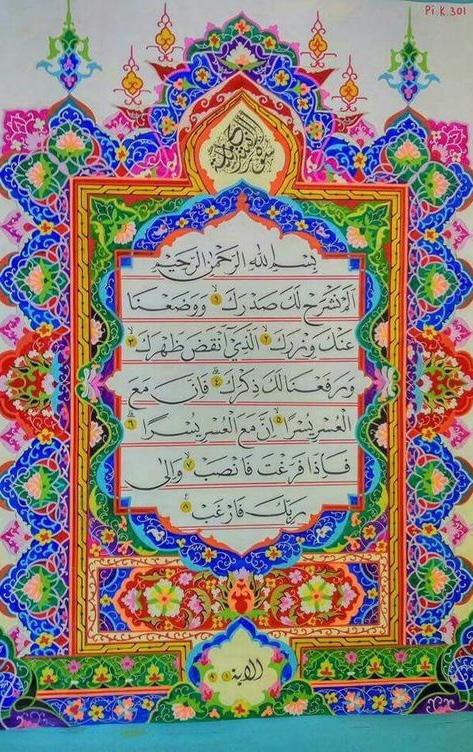 Pi.K.301
بِسْمِ اللهِ الرَّحْمٰنِ الرَّحِيْمِ
اَلَمْ نَشْرَحْ لَكَ صَدْرَكَ ١ وَوَضَعْنَا
عَنْكَ وِزْرَكَ ٢ الَّذِيْٓ اَنْقَضَ ظَهْرَكَ ٣
وَرَفَعْنَا لَكَ ذِكْرَكَ ٤ فَاِنَّ مَعَ
الْعُسْرِ يُسْرًا ٥ اِنَّ مَعَ الْعُسْرِ يُسْرًا ٦
فَاِذَا فَرَغْتَ فَانْصَبْ ٧ وَاِلٰى
رَبِّكَ فَارْغَبْ ٨
الاية